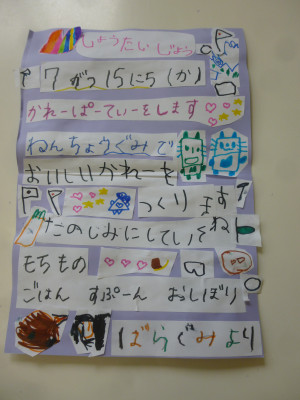 しょうたいじょう
7がつ15にち(か)
かれーぱーてぃーをします
ねんちょうぐみで
おいしいかれーを
つくります
たのしみにしていてね
もちもの
ごはん すぷーん おしぼり
ばらぐみより